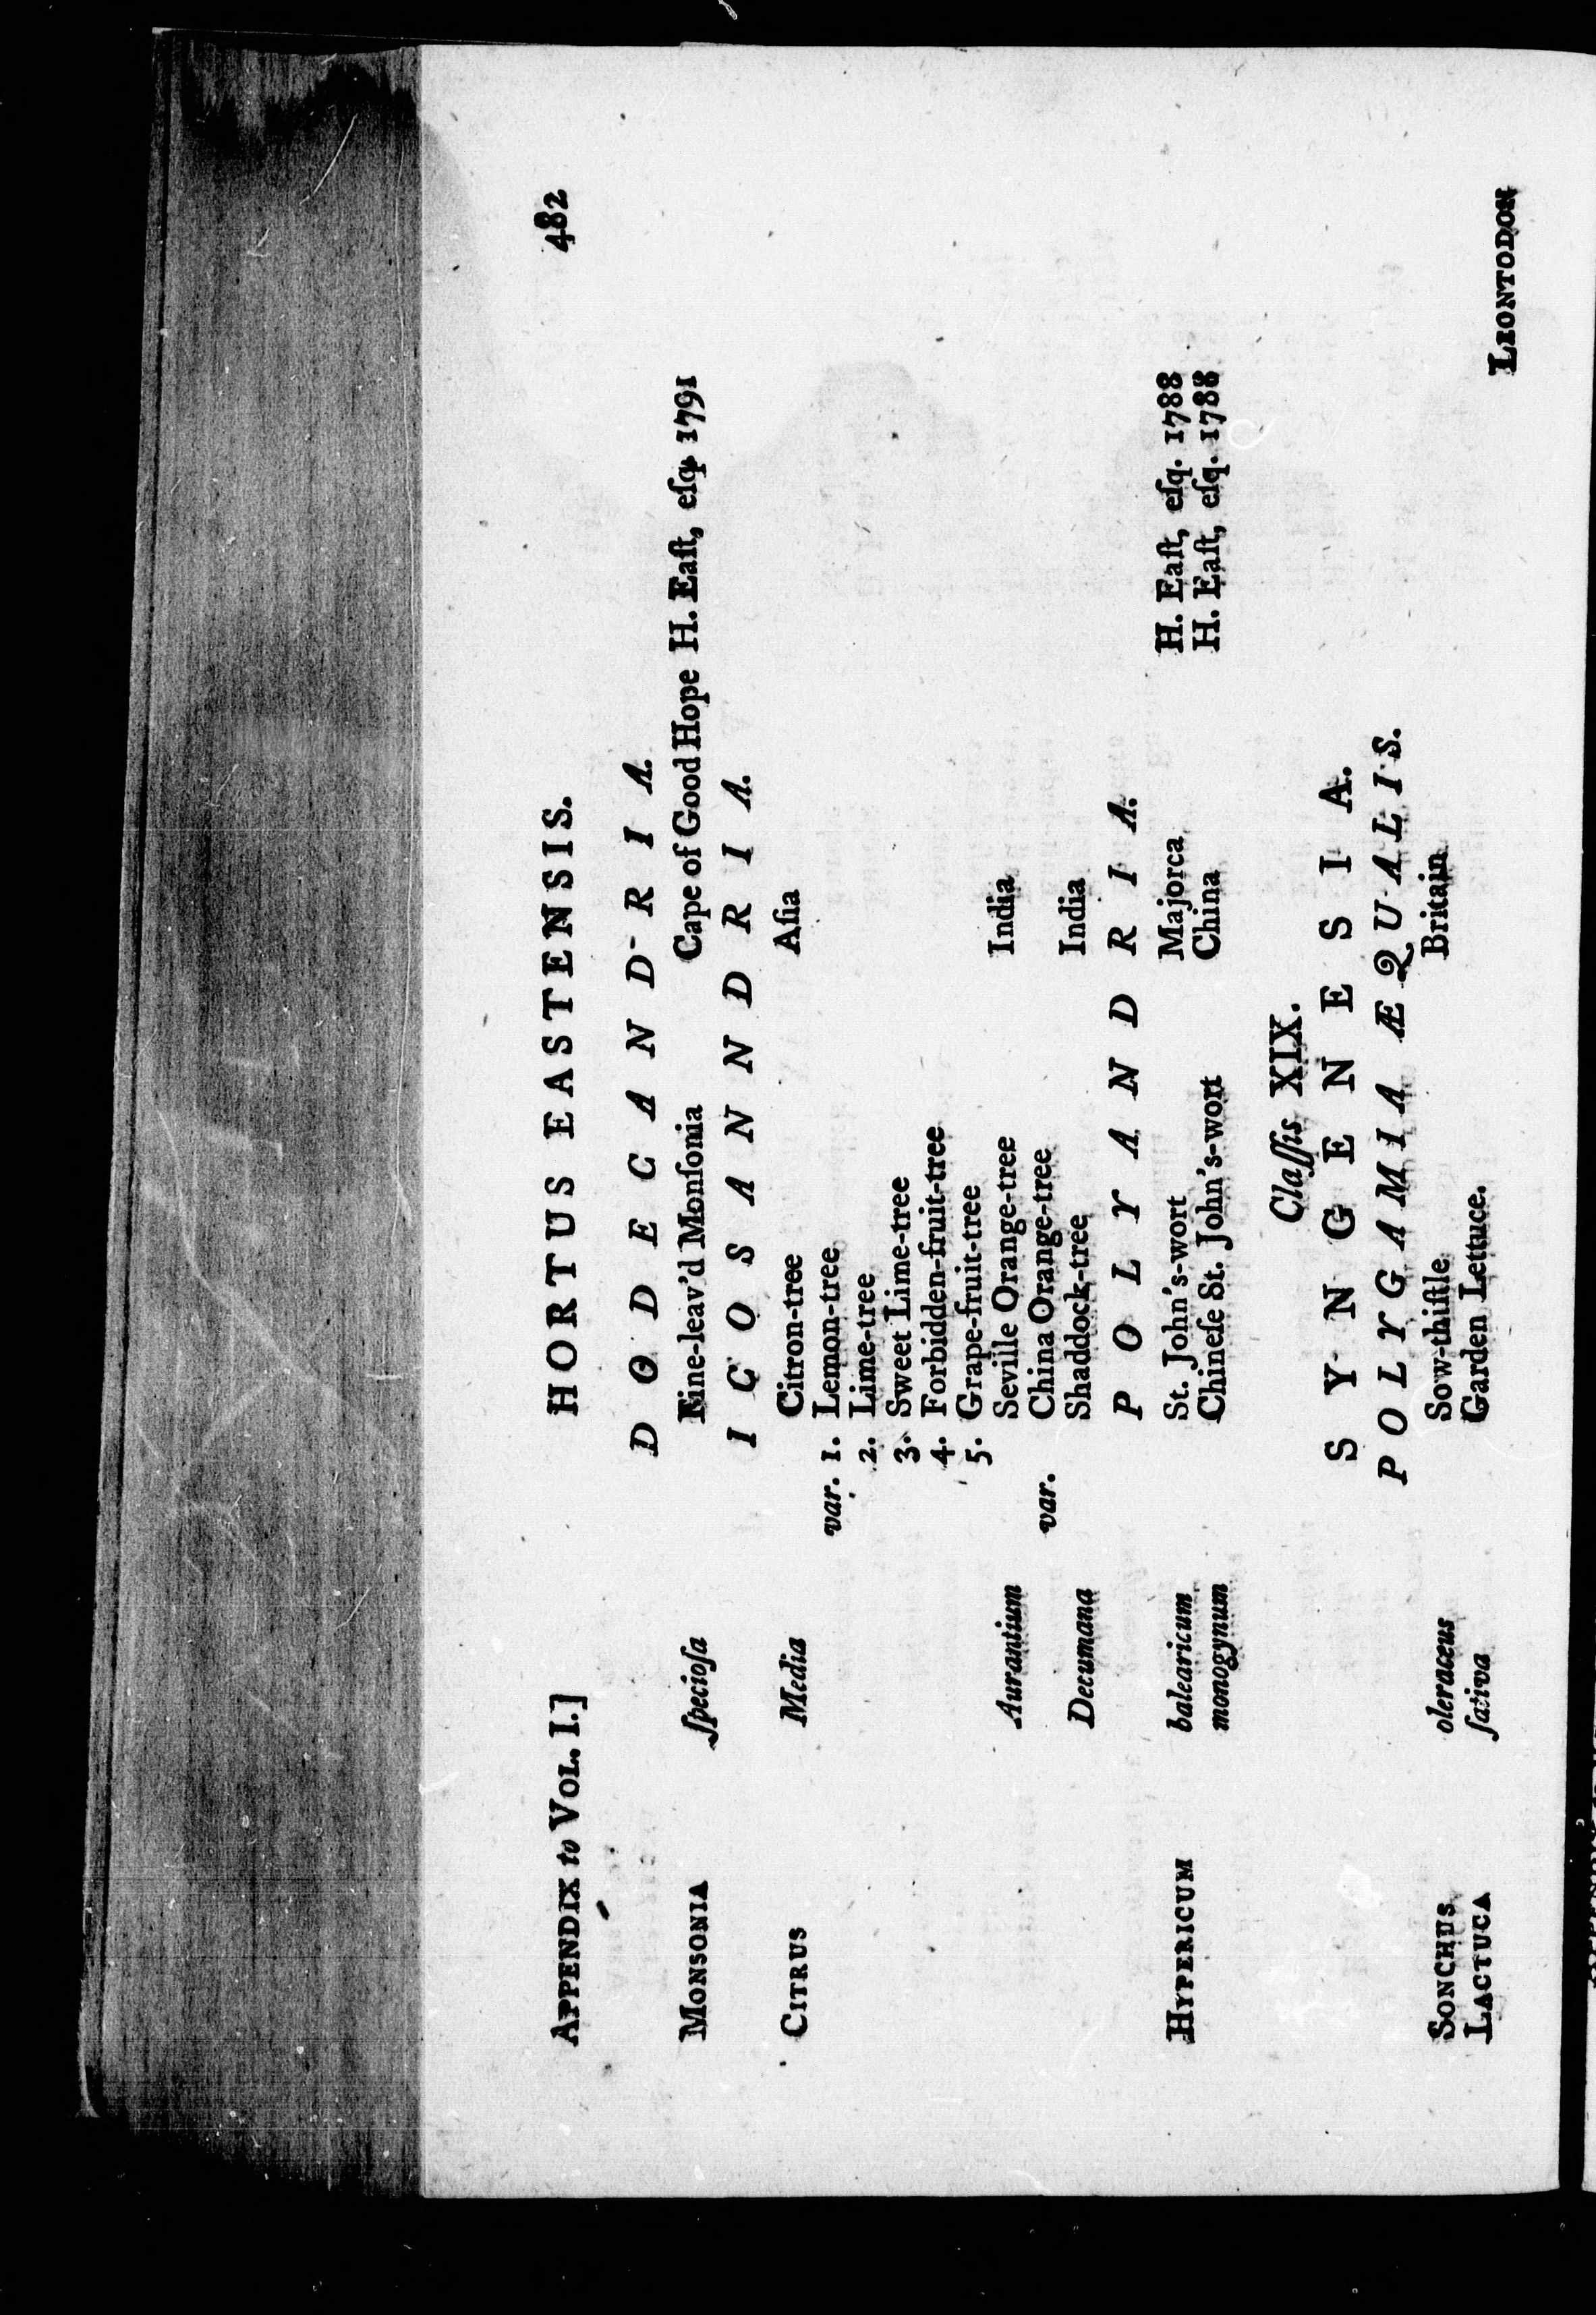 APPENDIX to VOL. I.] HORTUS EASTENSIS. 482
DODECANDRIA.
MONSONIA ſpecioſa Fine-leav'd Monſonia Cape of Good Hope H. Eaſt, eſq. 1791
ICOSANNDRIA.
CITRUS Media Citron-tree Aſia
var. 1. Lemon-tree
2. Lime-tree
3. Sweet Lime-tree
4. Forbidden-fruit-tree
5. Grape-fruit-tree
Aurantium Seville Orange-tree India
var. China Orange-tree
Decumana Shaddock-tree India
POLYANDRIA.
HYPERICUM balearicum St. John's-wort Majorca H. Eaſt, eſq. 1788
monogynum Chineſe St. John's-wort China H. Eaſt, eſq. 1788
Claſſis XIX.
SYNGENESIA.
POLYGAMIA ÆQUALIS.
SONCHUS oleraceus Sow-thiſtle Britain
LACTUCA ſativa Garden Lettuce.
LEONTODON